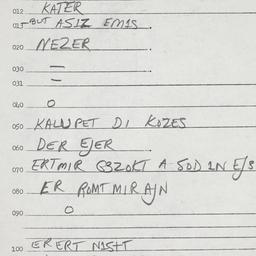 012 KATER
015 BUT ASIZ EMES
020 NEZER
030 =
031 =
040 O
050 KALUPET DI KOZES
060 DER EJER
070 ERTMIR GSZOKT A SOD IN EJS
080 ER ROMT MIR AJN
090 O
100 ER ERT NISHT